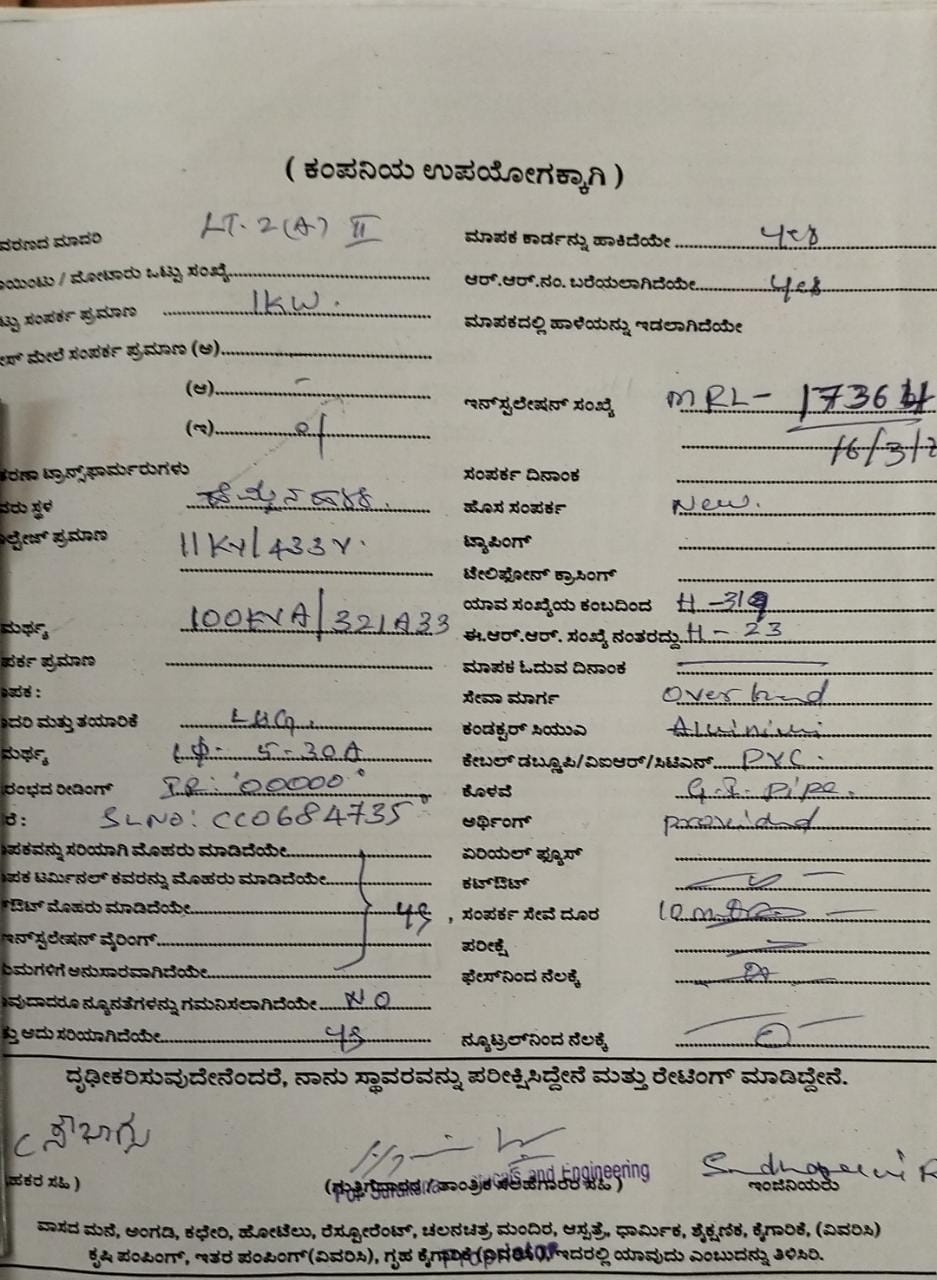 ( ಕಂಪನಿಯ ಉಪಯೋಗಕ್ಕಾಗಿ )
ವರಣದ ಮಾದರಿ LT-2(A) II
ಮಾಪಕ ಕಾರ್ಡನ್ನು ಹಾಕಿದೆಯೇ yes
ಯಿಂಟು / ಮೋಟಾರು ಒಟ್ಟು ಸಂಖ್ಯೆ
ಆರ್.ಆರ್.ನಂ. ಬರೆಯಲಾಗಿದೆಯೇ yes
ಟ್ಟು ಸಂಪರ್ಕ ಪ್ರಮಾಣ 1KW.
ಮಾಪಕದಲ್ಲಿ ಹಾಳೆಯನ್ನು ಇಡಲಾಗಿದೆಯೇ
ಮೇಲೆ ಸಂಪರ್ಕ ಪ್ರಮಾಣ (ಅ)
(ಆ) –
ಇನ್‌ಸ್ಟಲೇಷನ್ ಸಂಖ್ಯೆ MRL-
(ಇ)
16/3/
ಕರಣಾ ಟ್ರಾನ್ಸ್‌ಫಾರ್ಮರುಗಳು
ಸಂಪರ್ಕ ದಿನಾಂಕ
ವರು ಸ್ಥಳ
ಹೊಸ ಸಂಪರ್ಕ New.
ಲ್ಟೇಜ್ ಪ್ರಮಾಣ 11KV/433V.
ಟ್ಯಾಪಿಂಗ್
ಟೇಲಿಫೋನ್ ಕ್ರಾಸಿಂಗ್
ಯಾವ ಸಂಖ್ಯೆಯ ಕಂಬದಿಂದ
ಮರ್ಥ್ಯ 100KVA/321A33
ಈ.ಆರ್.ಆರ್. ಸಂಖ್ಯೆ ನಂತರದ್ದು H-23
ಪರ್ಕ ಪ್ರಮಾಣ
ಮಾಪಕ ಓದುವ ದಿನಾಂಕ
ಾಪಕ :
ಸೇವಾ ಮಾರ್ಗ Over head
ಾದರಿ ಮತ್ತು ತಯಾರಿಕೆ L&G.
ಕಂಡಕ್ಟರ್ ಸಿಯುಎ
ಮರ್ಥ್ಯ 1Φ- 5-30A
ಕೇಬಲ್ ಡಬ್ಲೂಪಿ/ವಿಐಆರ್/ಸಿಟಿಎನ್ PVC.
ರಂಭದ ರೀಡಿಂಗ್ IR: '00000'
ಕೊಳವೆ G.I. pipe.
ರೆ : SLNO: CC0684735
ಅರ್ಥಿಂಗ್ provided
ಾಪಕವನ್ನು ಸರಿಯಾಗಿ ಮೊಹರು ಮಾಡಿದೆಯೇ
ಏರಿಯಲ್ ಫ್ಯೂಸ್
ಾಪಕ ಟರ್ಮಿನಲ್ ಕವರನ್ನು ಮೊಹರು ಮಾಡಿದೆಯೇ
ಕಟ್‌ಔಟ್
ಔಟ್ ಮೊಹರು ಮಾಡಿದೆಯೇ ys
, ಸಂಪರ್ಕ ಸೇವೆ ದೂರ
ಇನ್‌ಸ್ಟಲೇಷನ್ ವೈರಿಂಗ್
ಪರೀಕ್ಷೆ
ಯಮಗಳಿಗೆ ಅನುಸಾರವಾಗಿದೆಯೇ
ಫೇಸ್‌ನಿಂದ ನೆಲಕ್ಕೆ
ಾವುದಾದರೂ ನ್ಯೂನತೆಗಳನ್ನು ಗಮನಿಸಲಾಗಿದೆಯೇ NO
ತ್ತು ಅದು ಸರಿಯಾಗಿದೆಯೇ ys
ನ್ಯೂಟ್ರಲ್‌ನಿಂದ ನೆಲಕ್ಕೆ
ದೃಢೀಕರಿಸುವುದೇನೆಂದರೆ, ನಾನು ಸ್ಥಾವರವನ್ನು ಪರೀಕ್ಷಿಸಿದ್ದೇನೆ ಮತ್ತು ರೇಟಿಂಗ್ ಮಾಡಿದ್ದೇನೆ.
ಸೌಭಾಗ್ಯ
and Engineering
ಹಕರ ಸಹಿ )
(ಗುತ್ತಿಗೆದಾರನ / ತಾಂತ್ರಿಕ ಸಲಹೆಗಾರರ ಸಹಿ )
ಇಂಜಿನಿಯರು
ವಾಸದ ಮನೆ, ಅಂಗಡಿ, ಕಛೇರಿ, ಹೋಟೆಲು, ರೆಸ್ಟೋರೆಂಟ್, ಚಲನಚಿತ್ರ ಮಂದಿರ, ಆಸ್ಪತ್ರೆ, ಧಾರ್ಮಿಕ, ಶೈಕ್ಷಣಿಕ, ಕೈಗಾರಿಕೆ, (ವಿವರಿಸಿ)
ಕೃಷಿ ಪಂಪಿಂಗ್, ಇತರ ಪಂಪಿಂಗ್ (ವಿವರಿಸಿ), ಗೃಹ ಕೈಗಾರಿಕೆ (ವಿವರಿಸಿ) ಇದರಲ್ಲಿ ಯಾವುದು ಎಂಬುದನ್ನು ತಿಳಿಸಿರಿ.